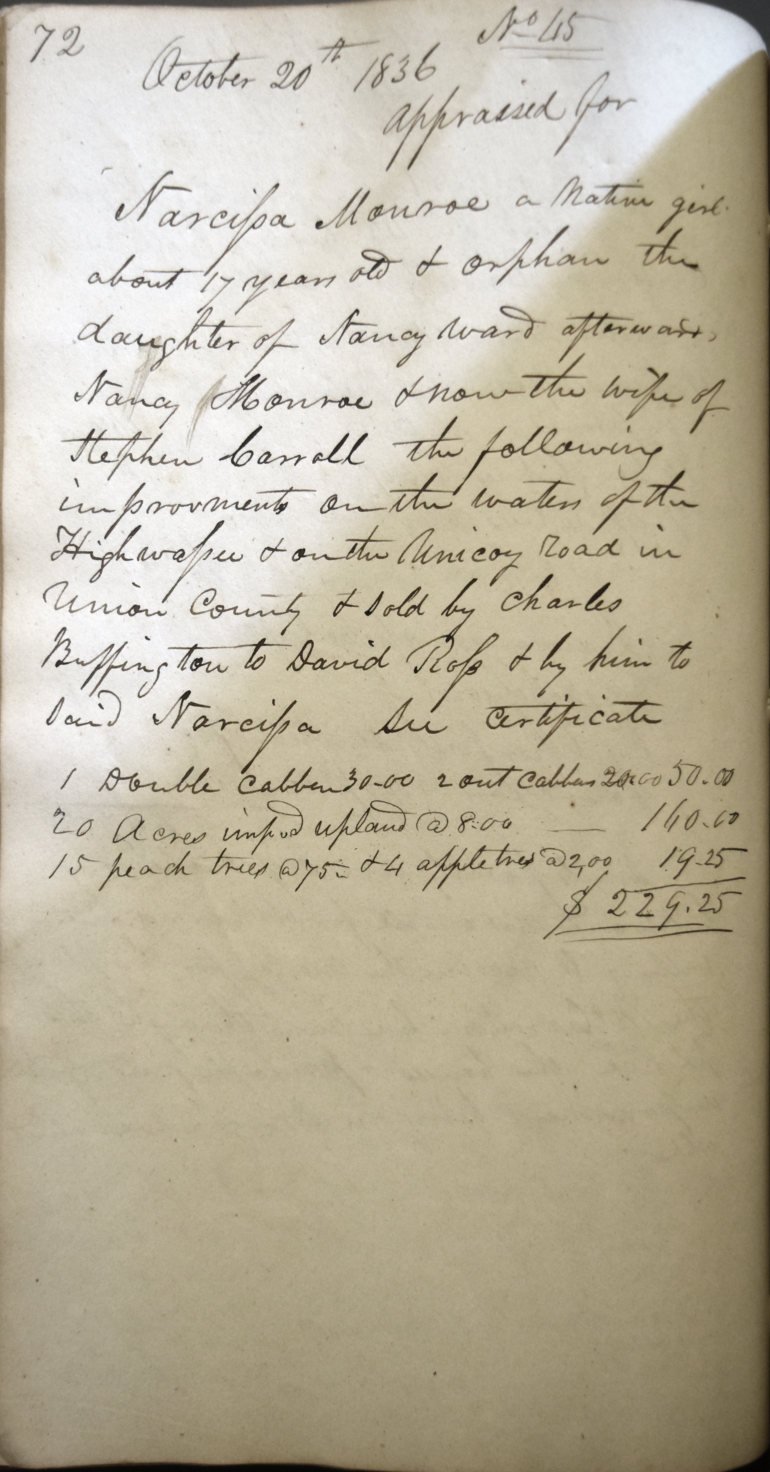 72
No 45
October 20th 1836
appraised for
Narcissa Monroe a Native girl
about 17 years old & orphan the
daughter of Nancy Ward afterwards
Nancy Monroe & now the wife of
Stephen Carroll the following
improvments on the waters of the
Highwassee & on the Unicoy Road in
Union County & sold by Charles
Buffington to David Ross & by him to
said Narcissa See Certificate
1 Double cabben 30.00 2 out cabbens 20.00 50.00
20 Acres imp.d upland @ 8.00 — 160.00
15 peach trees @ 75 & 4 apple trees @ 2,00 19.25
$ 229.25